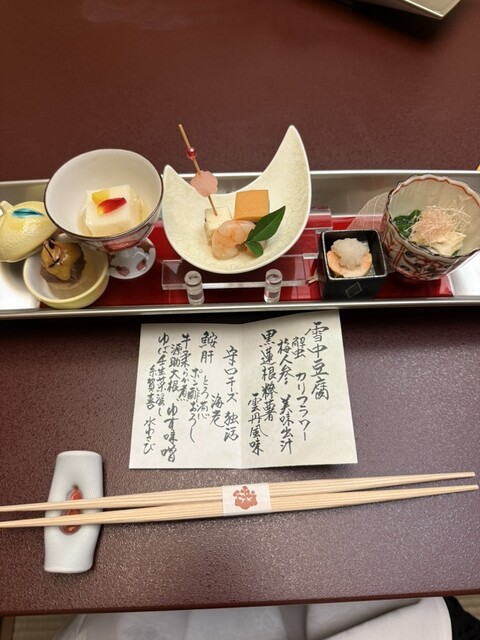 雪中豆腐
蟹 カリフラワー
梅人参 美味出汁
黒蓮根糝薯
雲丹風味
辛口チーズ 独活
海老
鮟肝 とろろ
ポン酢おろし
牛柔らか煮
源助大根 ゆず味噌
ゆば壬生菜浸し
糸賀喜 水わさび